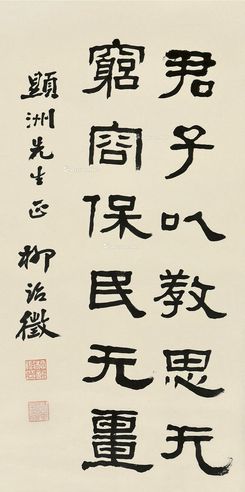 君子以教思无
窮容保民无畺
顯洲先生正 柳詒徵